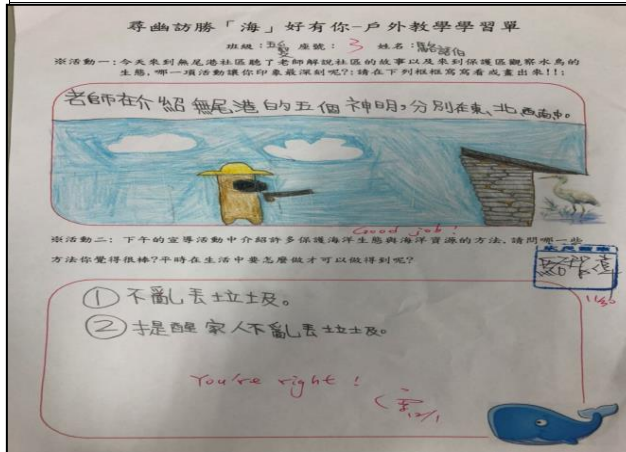 尋幽訪勝「海」好有你-戶外教學學習單
班級: 座號: 3 姓名:
※活動一:今天來到無尾港社區聽了老師解說社區的故事以及來到保護區觀察水鳥的
生態,哪一項活動讓你印象最深刻呢?請在下列框框寫寫看或畫出來!!:
老師在介紹無尾港的五個神明,分別在東、北西南中。
Good job!
※活動二: 下午的宣導活動中介紹許多保護海洋生態與海洋資源的方法,請問哪一些
方法你覺得很棒?平時在生活中要怎麼做才可以做得到呢?
11/30
①不亂丟垃圾。
②提醒家人不亂丟垃圾。
You're right!
12/1